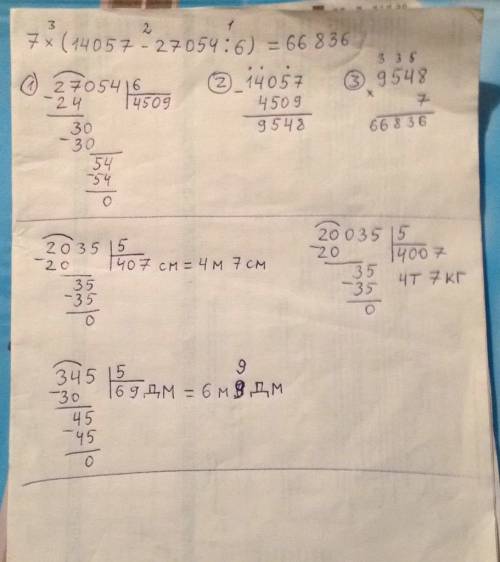 3 2 1
7 × (14057 - 27054 : 6) = 66 836
① 27054 | 6
- 24 | 4509
30
- 30
54
- 54
0
② - 14057
4509
9548
③ 3 3 5
9548
× 7
66836
2035 | 5
- 20 | 407 см = 4 м 7 см
35
- 35
0
20035 | 5
- 20 | 4007
35 4т 7 кг
- 35
0
345 | 5
- 30 | 69 дм = 6 м 9 дм
45
- 45
0